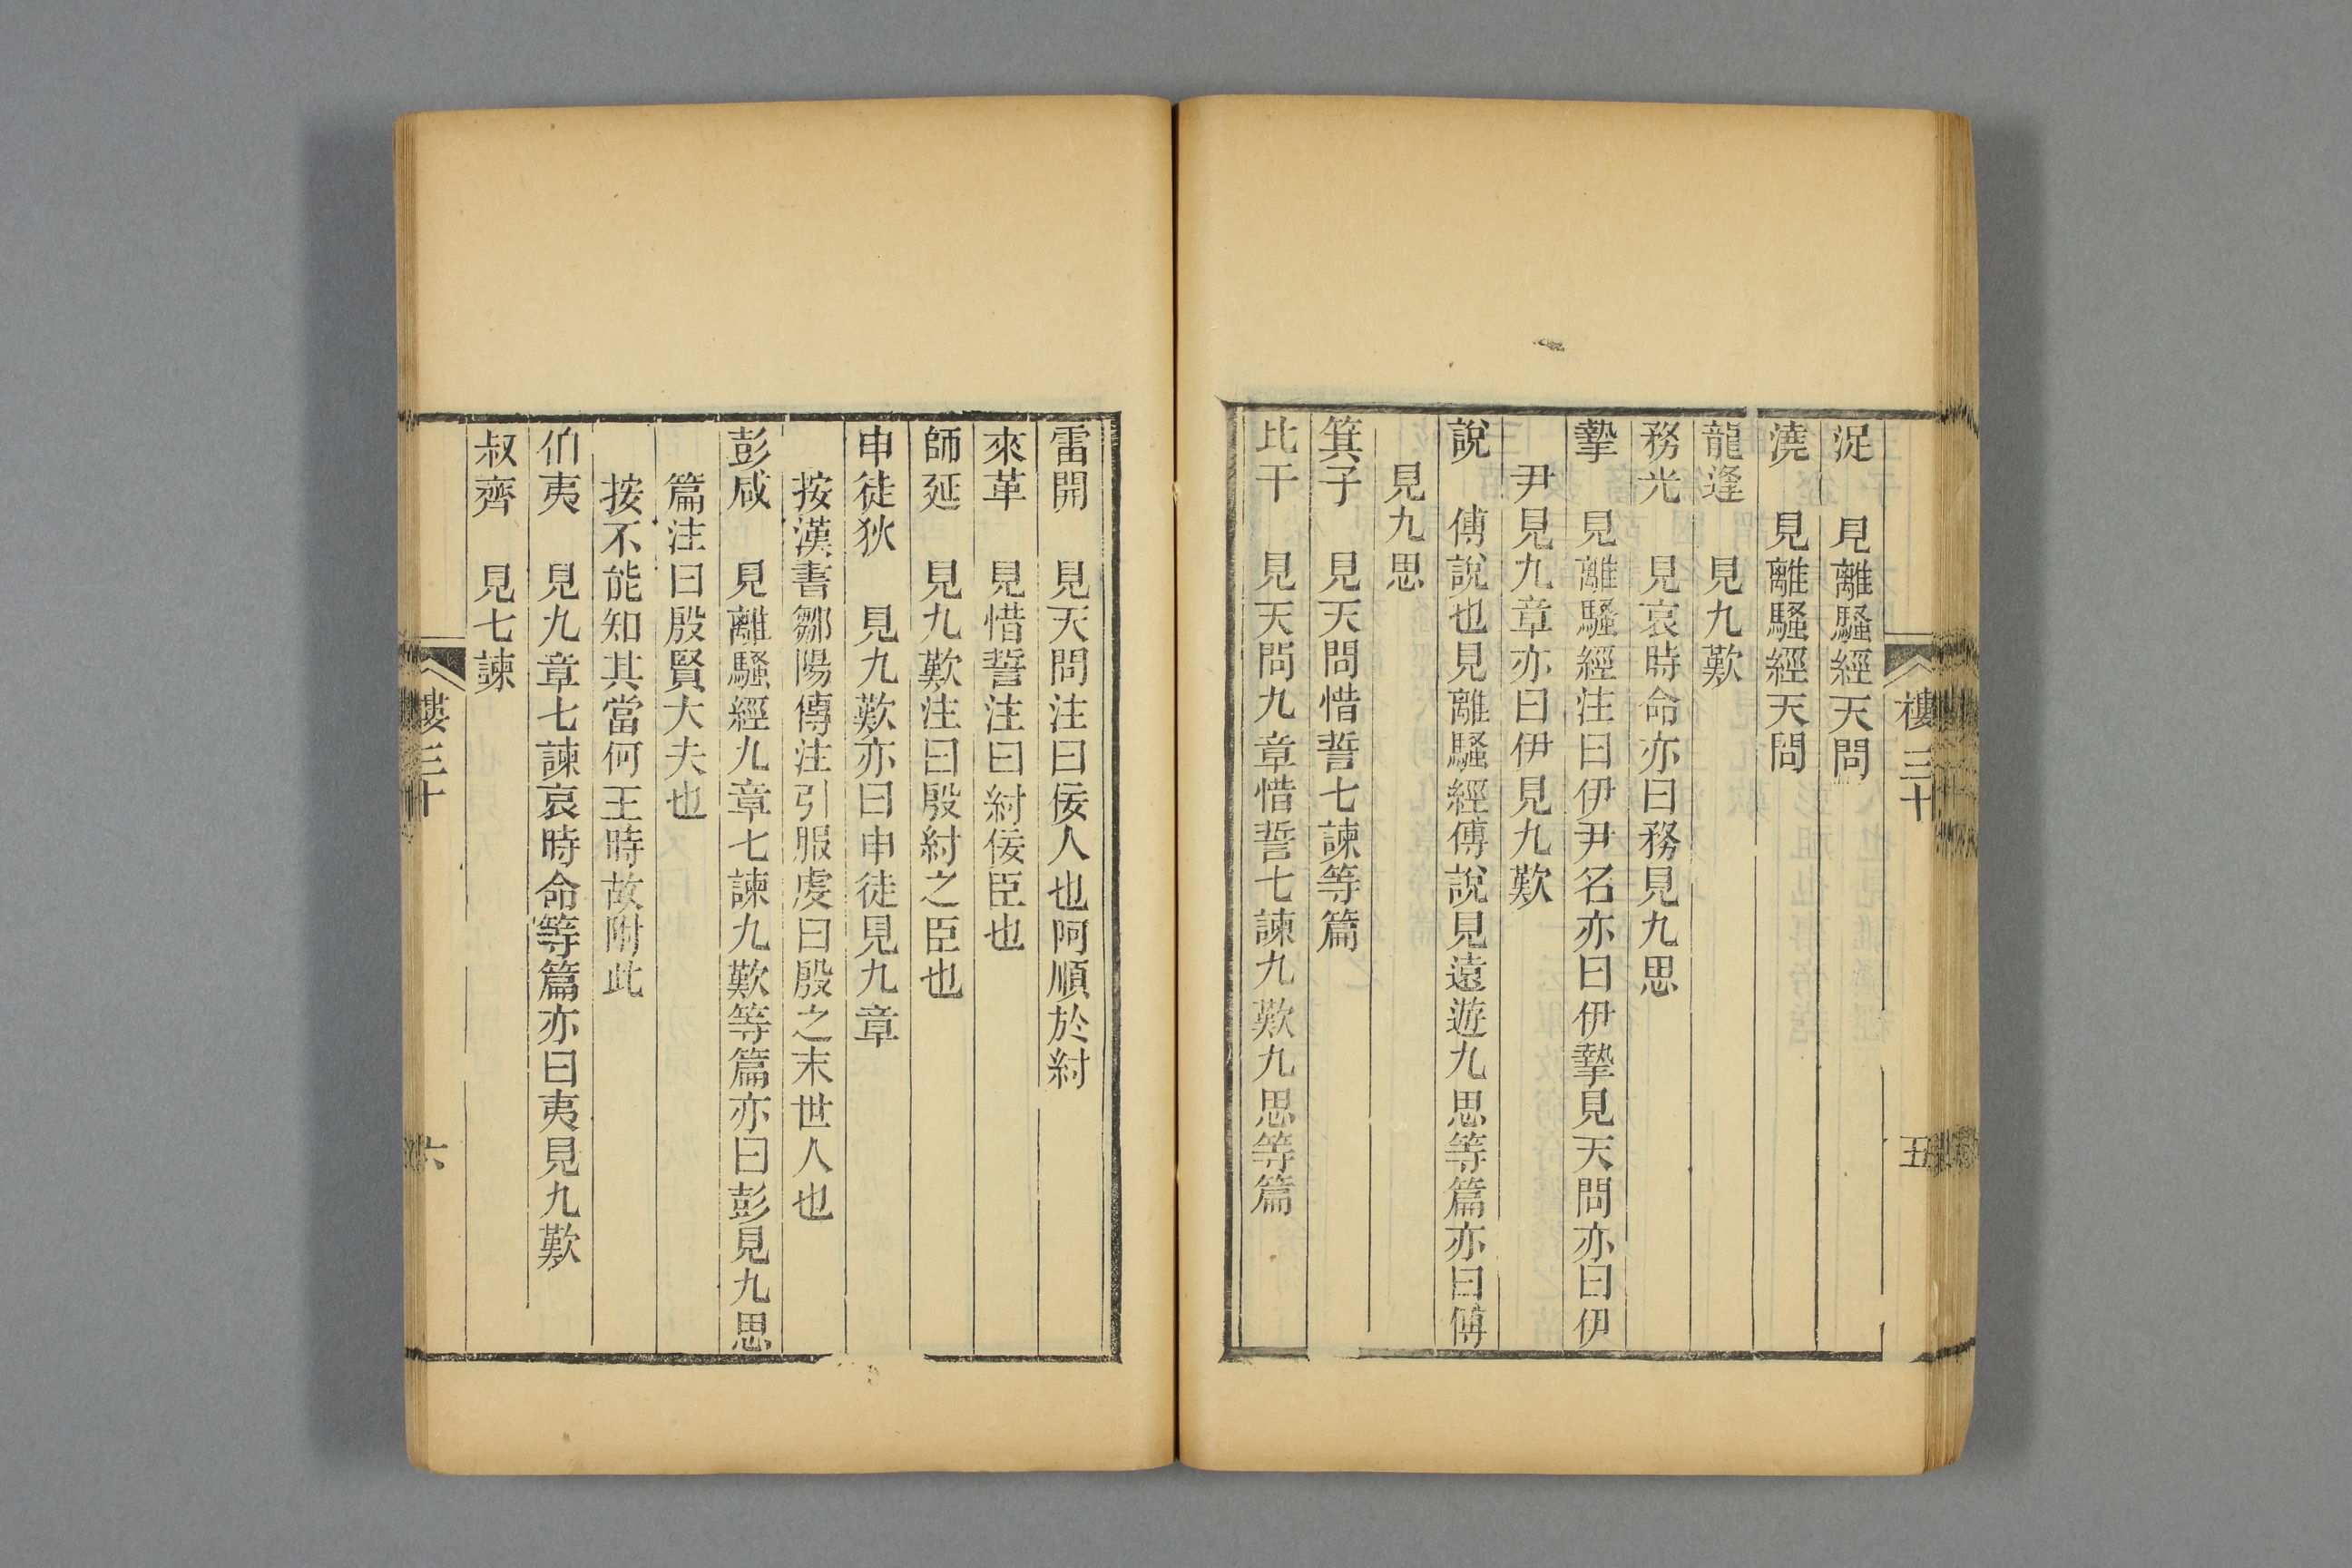 浞 見離騷經天問
澆 見離騷經天問
龍逢 見九歎
務光 見哀時命亦曰務見九思
摯 見離騷經注曰伊尹名亦曰伊摯見天問亦曰伊
尹見九章亦曰伊見九歎
說 傅說也見離騷經傅說見遠遊九思等篇亦曰傅
見九思
箕子 見天問惜誓七諫等篇
比干 見天問九章惜誓七諫九歎九思等篇
樓三十
五
雷開 見天問注曰佞人也阿順於紂
來革 見惜誓注曰紂佞臣也
師延 見九歎注曰殷紂之臣也
申徒狄 見九歎亦曰申徒見九章
按漢書鄒陽傳注引服虔曰殷之末世人也
彭咸 見離騷經九章七諫九歎等篇亦曰彭見九思
篇注曰殷賢大夫也
按不能知其當何王時故附此
伯夷 見九章七諫哀時命等篇亦曰夷見九歎
叔齊 見七諫
樓三十
六